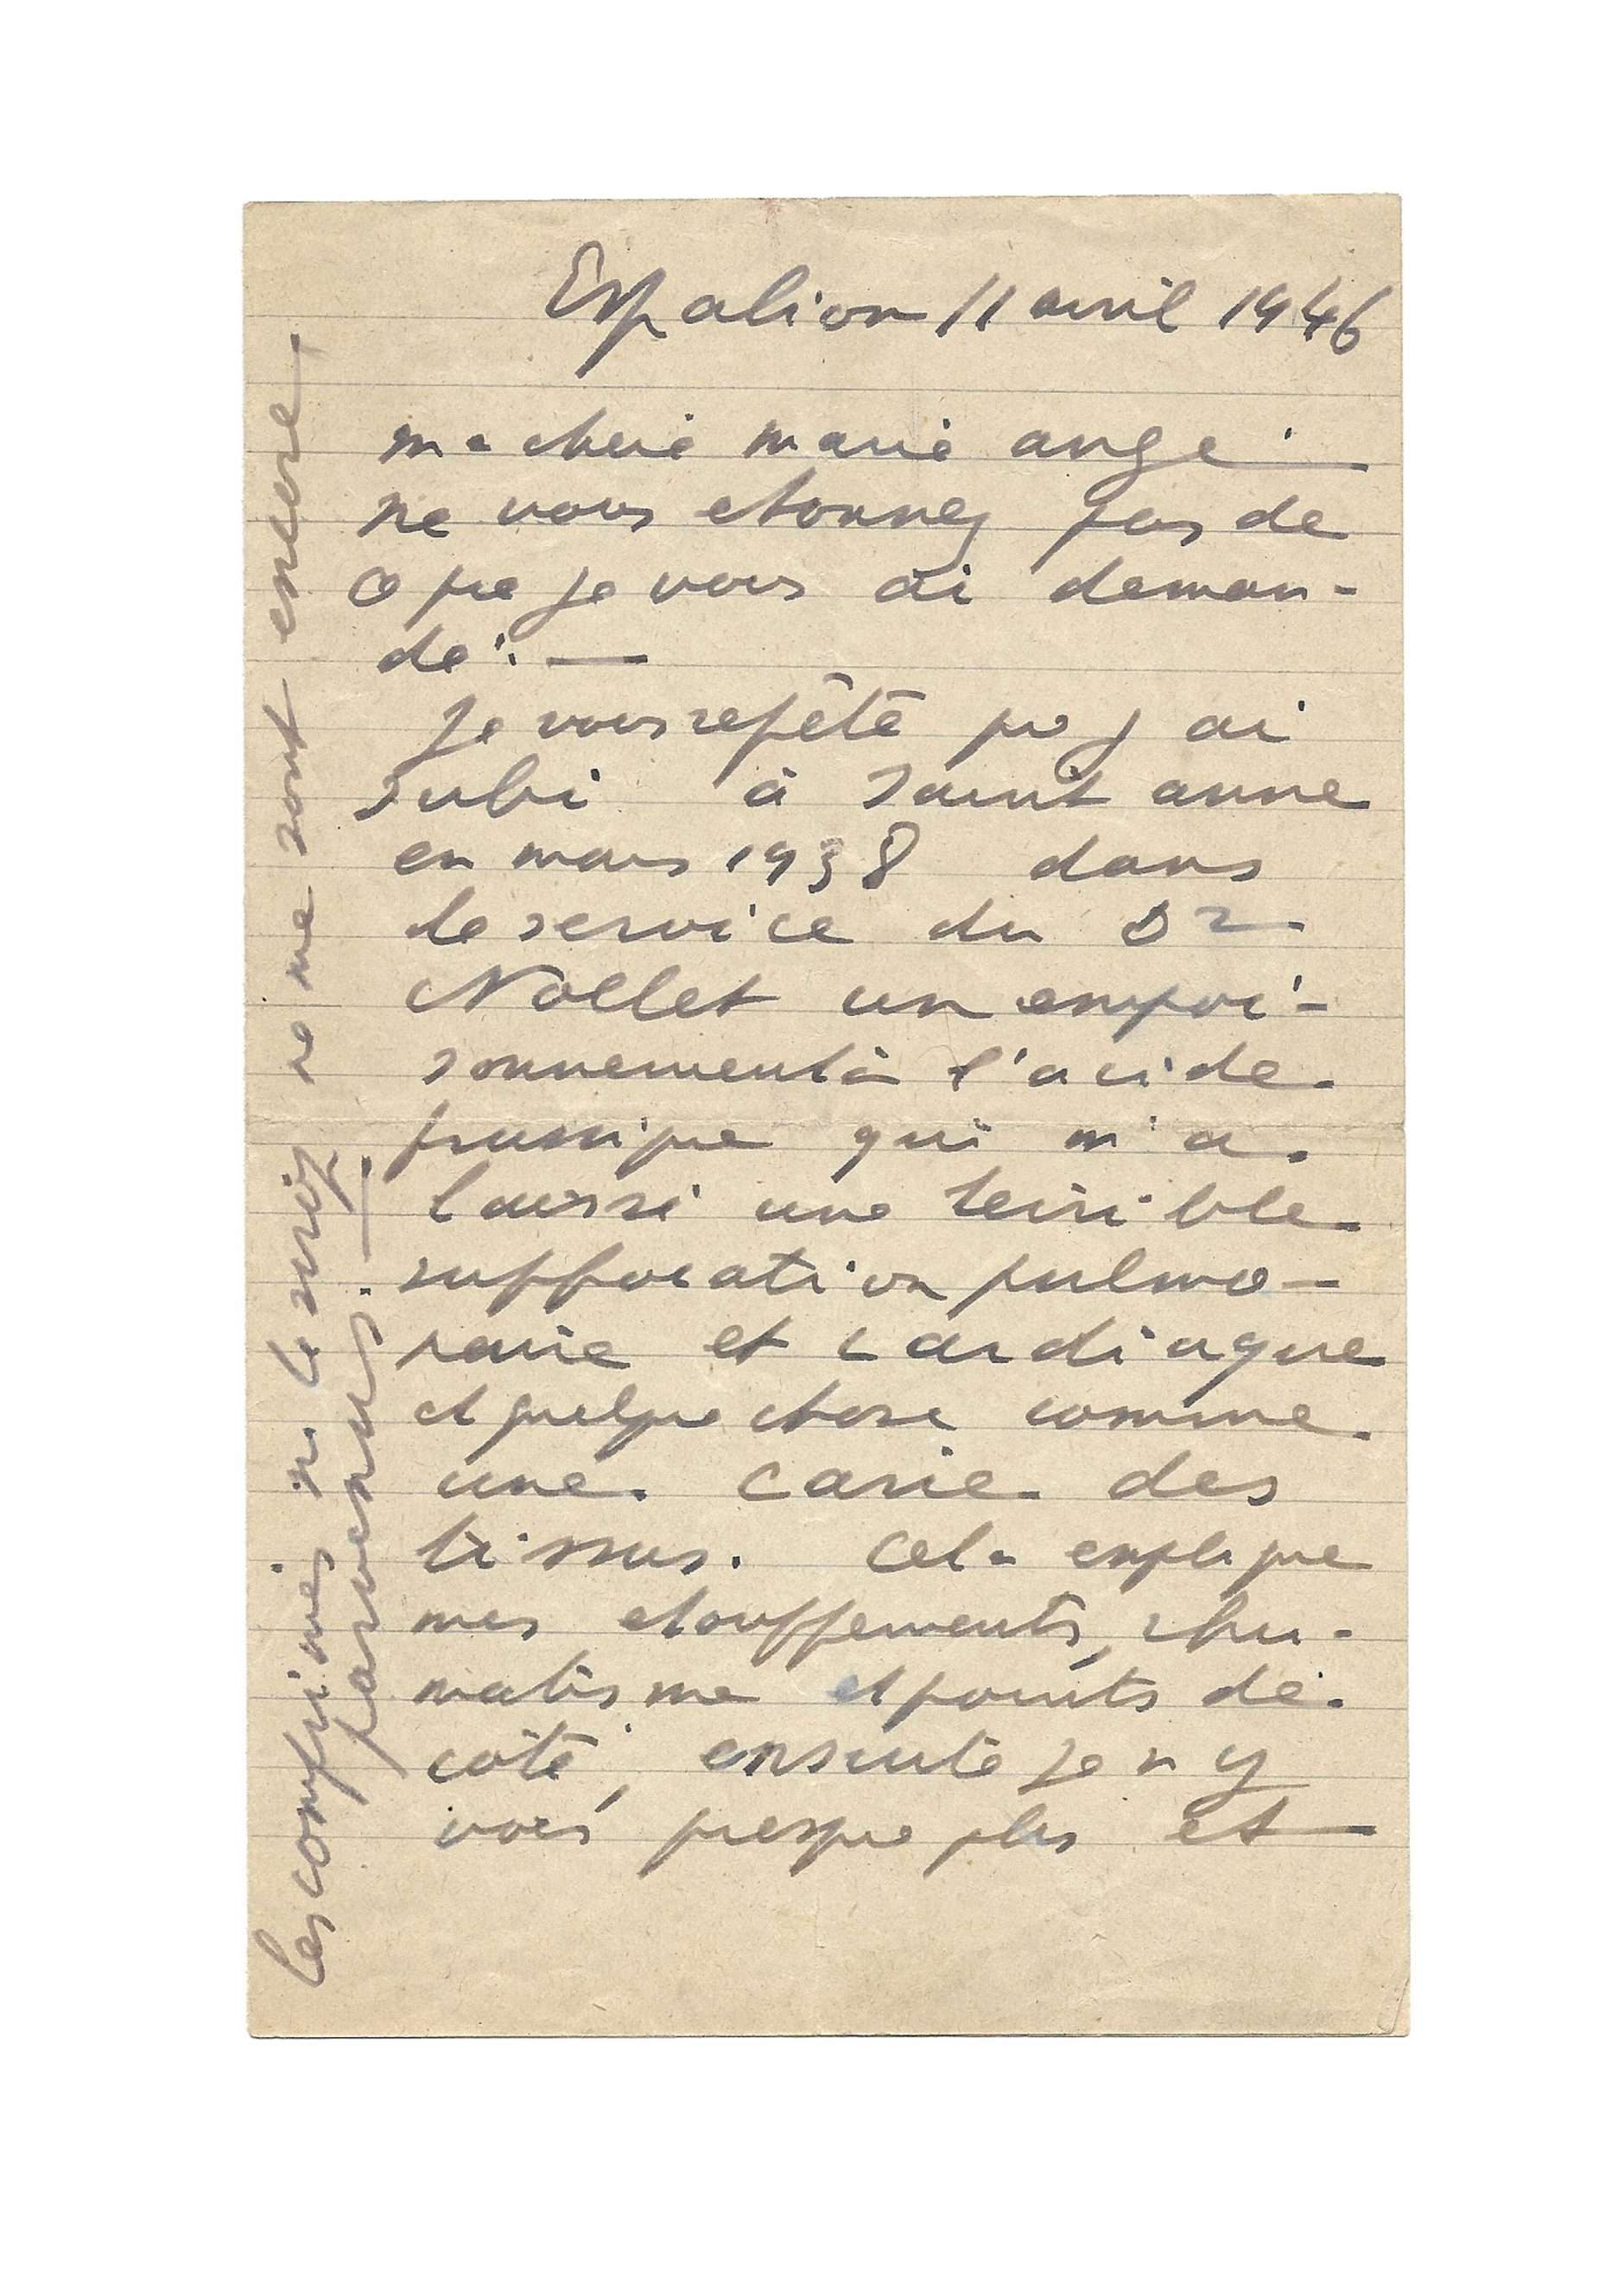 Espalion 11 avril 1946
ma cherie marie ange
ne vous etonnez pas de
ce que je vous ai deman-
dé. —
Je vous repète que j ai
subi à Saint anne
en mars 1938 dans
le service du Dr
Nollet un empoi-
sonnement à l'acide
prussique qui m'a
laissé une terrible
suffocation pulmo-
naire et cardiaque
et quelque chose comme
une carie des
tissus. Cela explique
mes etouffements, rhu-
matisme et points de
coté, ensuite je n y
vois presque plus et
les confitures ni le sirop ne me sont encore
parvenus. —